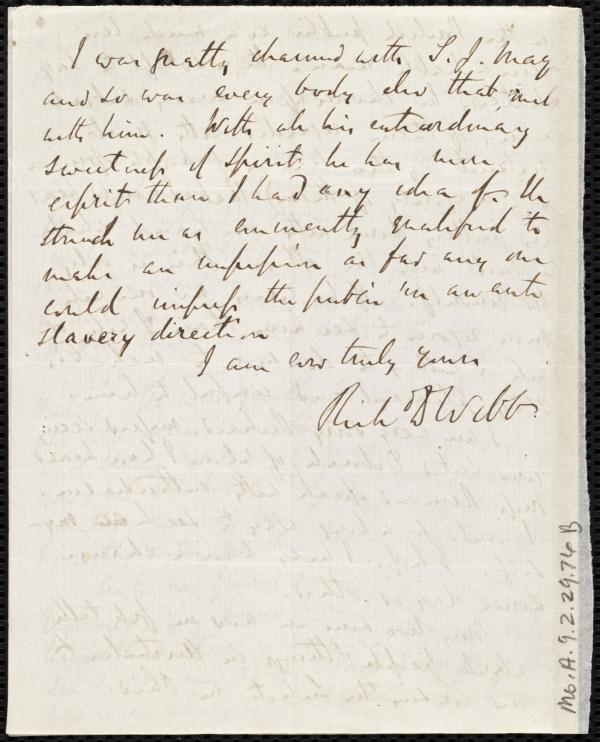 I was greatly charmed with S. J. May
and so was every body else that met
with him. With all his extraordinary
sweetness of spirit he has more
esprit than I had any idea of. He
struck me as eminently qualified to
make an impression as far as any one
could impress the public in an anti
slavery direction
I am ever truly yours
Rich D Webb.
Ms. A. 9. 2. 29. 74 B